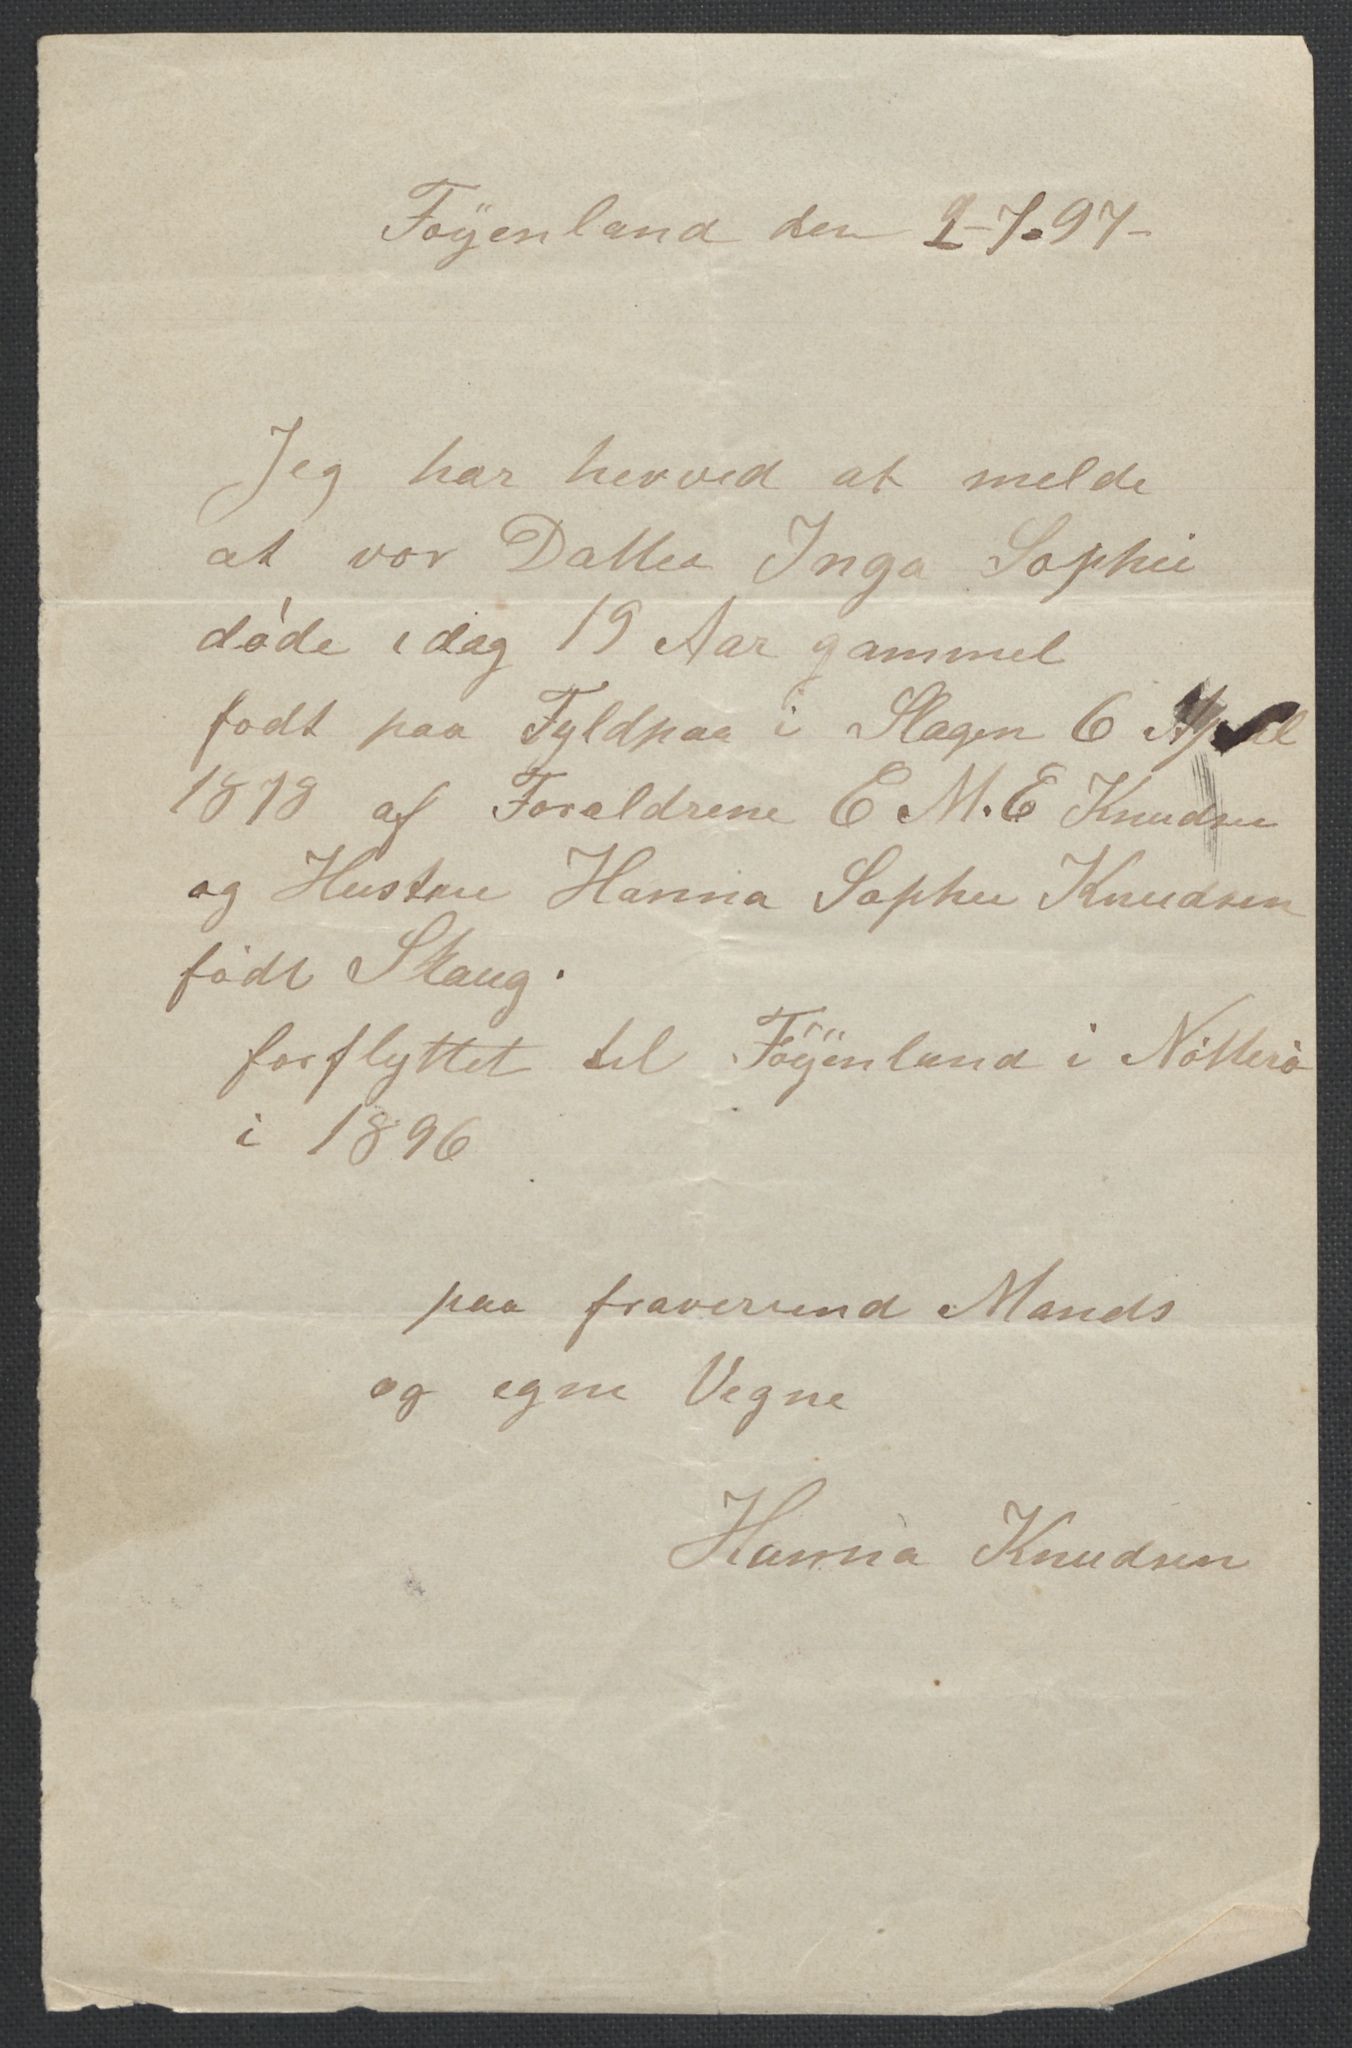 Foÿenland den 2-7.97-
Jeg har herved at melde
at vor Datter Inga Sophie
døde idag 19 Aar gammel
født paa Fyldpaa i Slagen 6 April
1878 af Foraldrene E M. E Knudsen
og Hustru Hanna Sophie Knudsen
født Skaug.
forflyttet til Föÿenland i Nötterö
i 1896
paa fraverend Mands
og egne Vegne
Hanna Knudsen